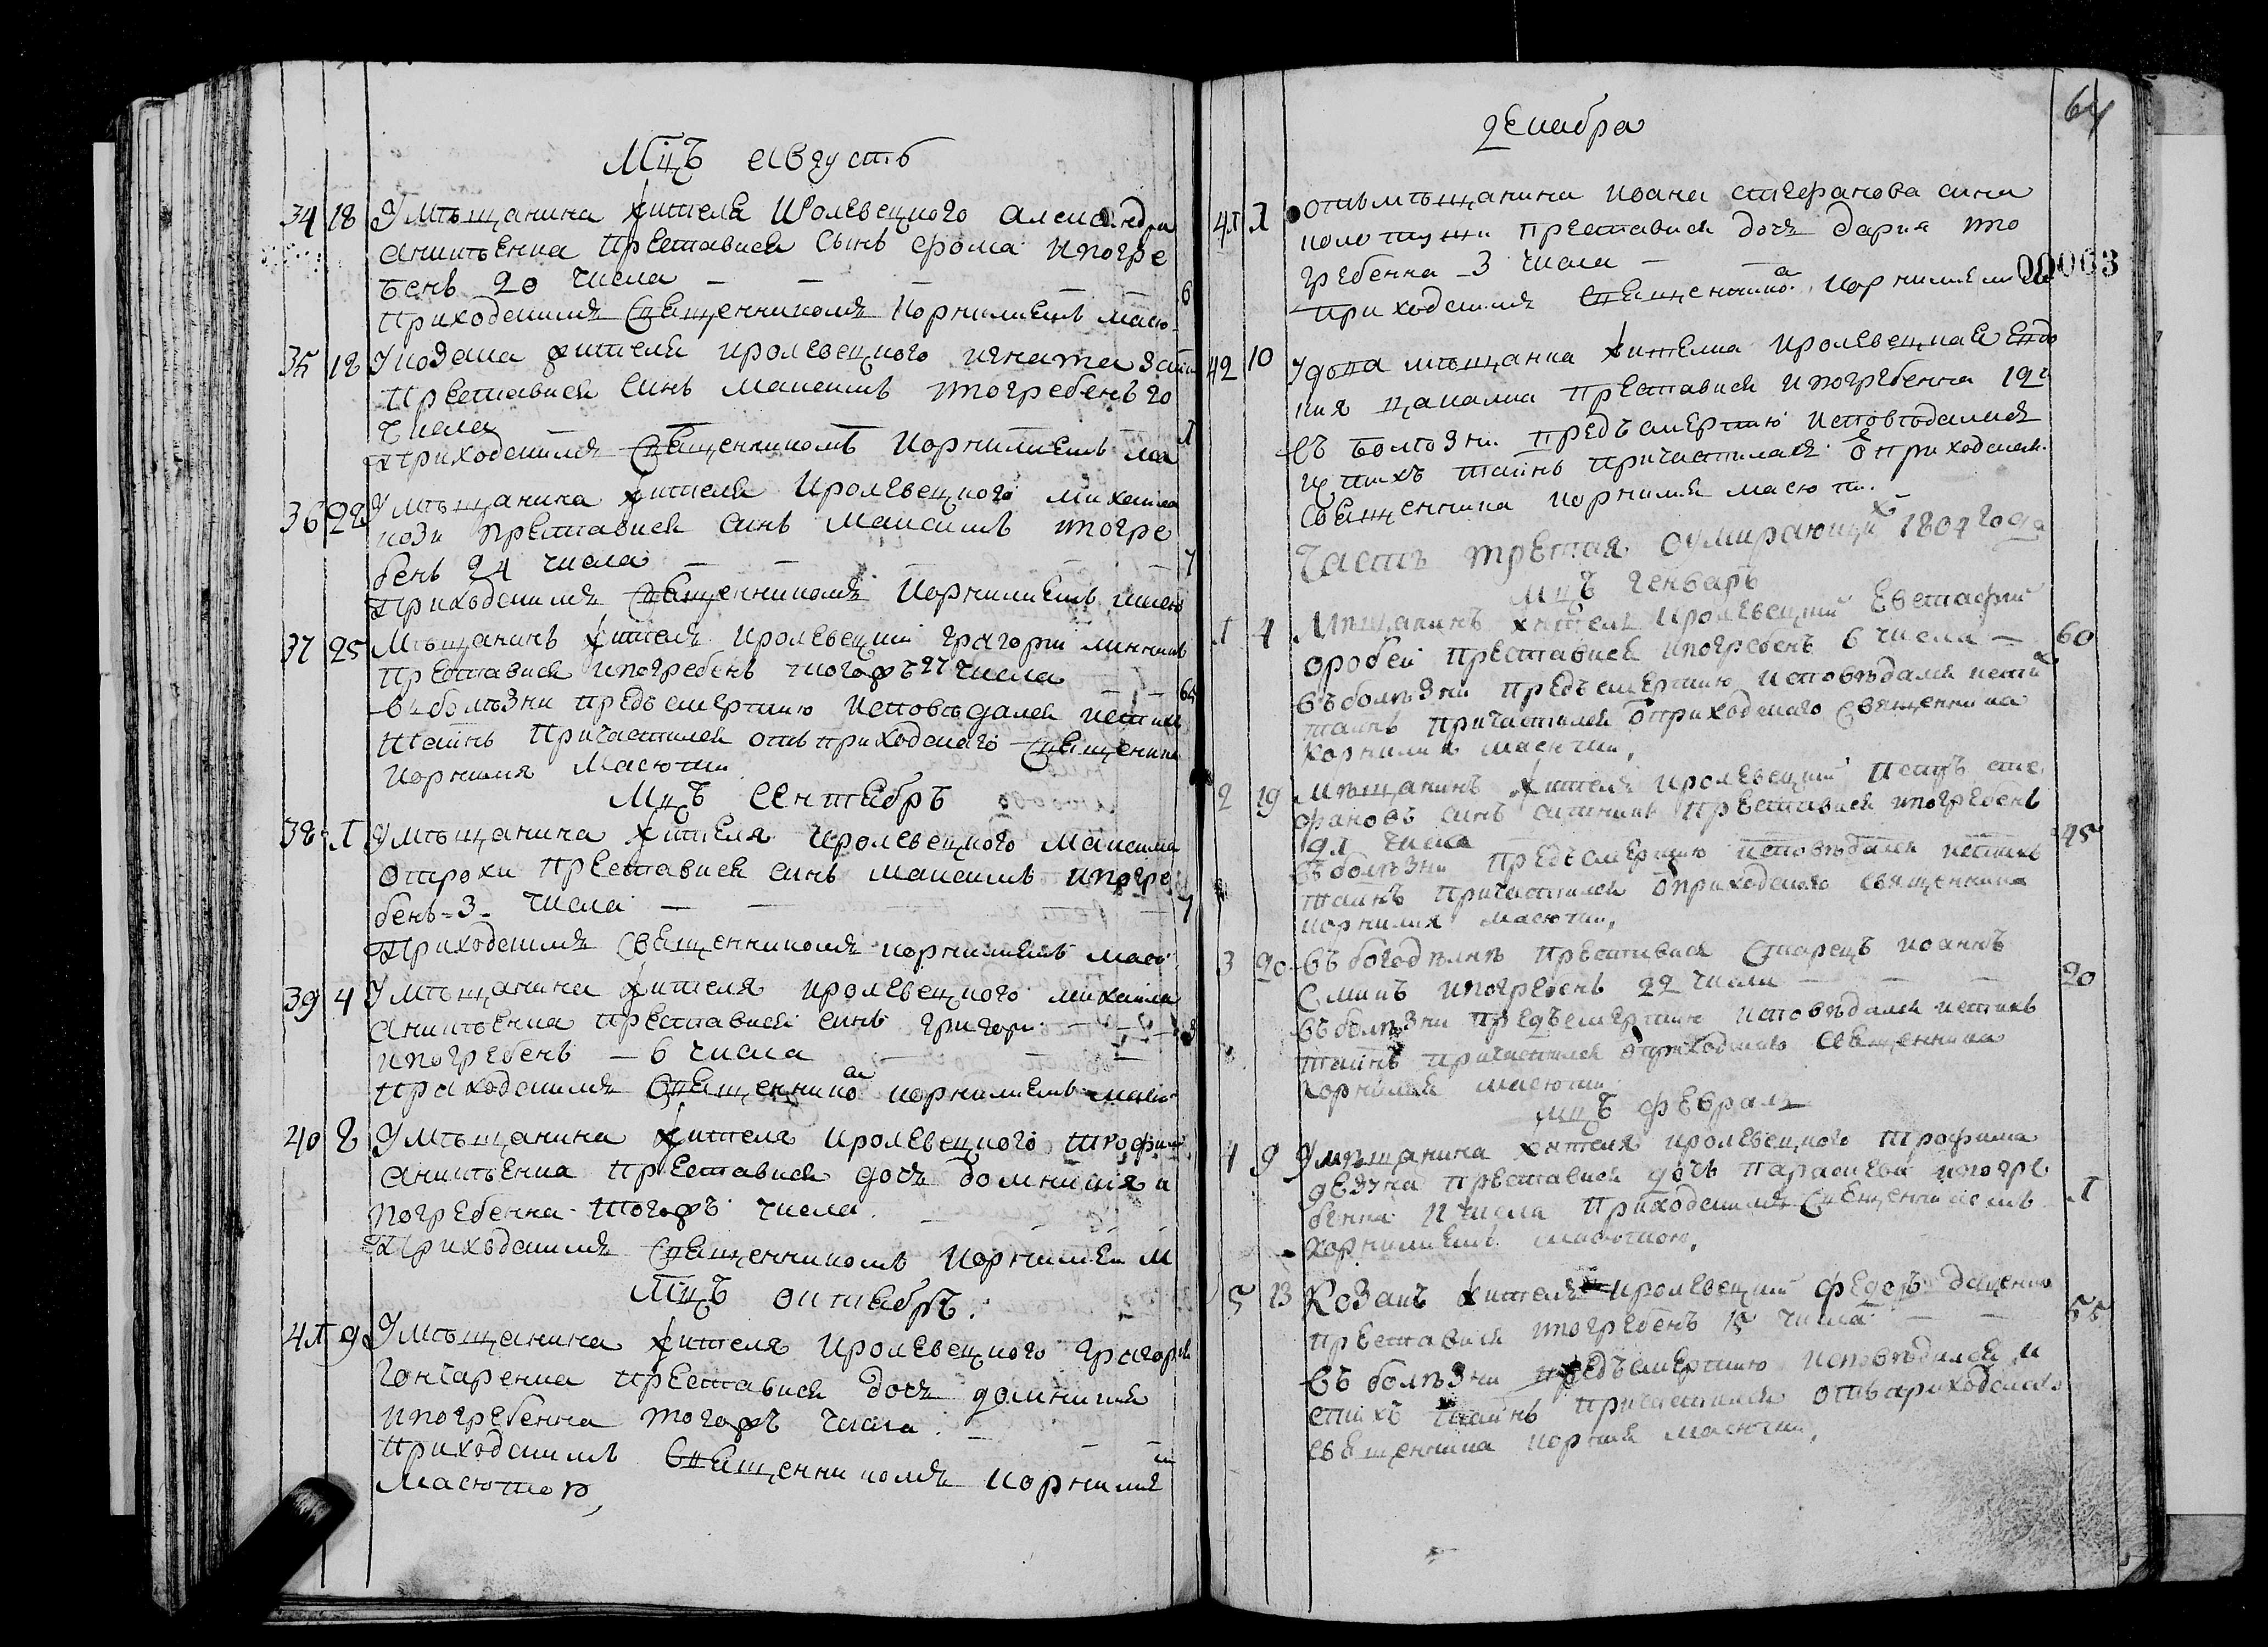 Мцъ августъ
34 18 У мѣщанина жителя кролевецкого александра
аникѣенка преставися сынъ фома и погре
бенъ 20 числа — — — — 6
Приходскимъ священникомъ Корнилиемъ масю
35 18 У козака жителя кролевецкого игната
преставися синъ максимъ и погребенъ 20
числа — — — 1
Приходскимъ священникомъ Корнилиемъ ма
36 22 У мѣщанина жителя кролевецкого михаила
преставися синъ максимъ и погре
бенъ 24 числа — — — — 7
Приходскимъ священникомъ Корнилиемъ
37 25 Мѣщанинъ жителъ кролевецкий григорий
преставися и погребенъ 27 числа — — 65
въ болѣзни предъ смертию исповѣдался и стихъ
таинъ причастился отъ приходского священника
Корнилия Масютки
Мцъ сентябръ
38 1 У мѣщанина жителя кролевецкого максима
отрохи преставися синъ максимъ и погре
бенъ - 3 - числа — — — 7
Приходскимъ священникомъ корнилиемъ масю
39 4 У мѣщанина жителя кролевецкого михаила
аникѣенка преставися синъ григори — — 3
и погребенъ — 6 числа — — —
приходскимъ священникомъ корнилиемъ масю
40 8 У мѣщанина жителя кролевецкого трофима
аникѣенка преставися дочъ домникия и
погребенна тогожъ числа —
Приходскимъ священникомъ Корнилием м
Мцъ октябръ
41 9 У мѣщанина жителя кролевецкого григория
гончаренка преставися дочъ домникия
и погребенна тогожъ числа — — —
приходскимъ священникомъ корнилием
масюткою,
64
декабра
41 1 отъ мѣщанина иоана стефанова сина
преставися дочъ дария и по
гребенна - 3 числа — —
приходскимъ священника корнилием
00063
42 10 Удова мѣщанка жителка кролевецкая
преставися и погребенна 12
въ болѣзни предъ смертию исповѣдалася
и стихъ таинъ причастилася о приходскаго
священника корнилия масютки
Частъ третая о умирающихъ 1807 года
мцъ генваръ
1 4 Мѣщанинъ жителъ кролевецкий Евстафий
оробей преставися и погребенъ 6 числа — 60
въ болѣзни предъ смертию исповѣдался и стихъ
таинъ причастился о приходского священника
корнилия масютки,
2 19 Мѣщанинъ жителъ кролевецкий сте
фановъ синъ преставися и погребенъ
21 числа 45
въ болѣзни предъ смертию исповѣдался и стихъ
таинъ причастился о приходского священника
корнилия масютки,
3 20 въ богодѣлнѣ преставися старецъ иоаннъ
и погребенъ 22 числа — — — 20
въ болѣзни предъ смертию исповѣдался и стихъ
таинъ причастился о приходского священника
корнилия масютки
мцъ февралъ
4 9 У мѣщанина жителя кролевецкого трофима
преставися дочъ параскева и погре
бенна 11 числа приходскимъ священникомъ 1
корнилиемъ масюткою,
5 13 Козакъ жителъ кролевецкий федоръ даценко
преставися и погребенъ 15 числа — — 55
въ болѣзни предъ смертию исповѣдался и
стихъ таинъ причастился отъ приходского
священника корнилия масютки,